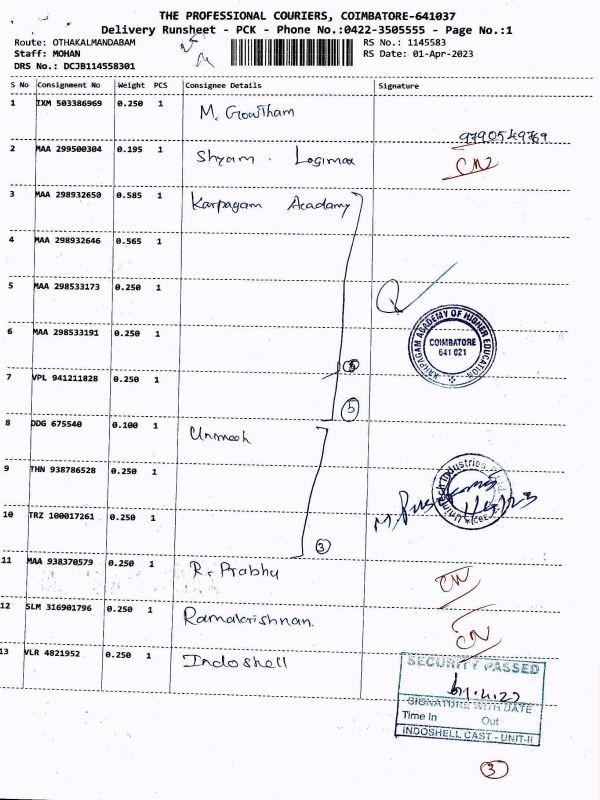 THE PROFESSIONAL COURIERS, COIMBATORE-641037
Delivery Runsheet - PCK - Phone No.:0422-3505555 - Page No.:1
Route: OTHAKALMANDABAM
RS No.: 1145583
Staff: MOHAN
RS Date: 01-Apr-2023
DRS No.: DCJB114558301
S No Consignment No Weight PCS Consignee Details Signature
1 IXM 503386969 0.250 1 M. Gowtham
9790549769
2 MAA 299500304 0.195 1 Shyam . Logimax
3 MAA 298932650 0.585 1 Karpagam Acadamy
4 MAA 298932646 0.565 1
5 MAA 298533173 0.250 1
6 MAA 298533191 0.250 1
KARPAGAM ACADEMY OF HIGHER EDUCATION
COIMBATORE
641 021
7 VPL 941211828 0.250 1
5
8 DDG 675540 0.100 1
9 THN 938786528 0.250 1
10 TRZ 100017261 0.250 1
3
11 MAA 938370579 0.250 1 R. Prabhu
12 SLM 316901796 0.250 1 Ramakrishnan.
13 VLR 4821952 0.250 1 Indoshell
SECURITY PASSED
SIGNATURE WITH DATE
Time In Out
INDOSHELL CAST - UNIT-II
3